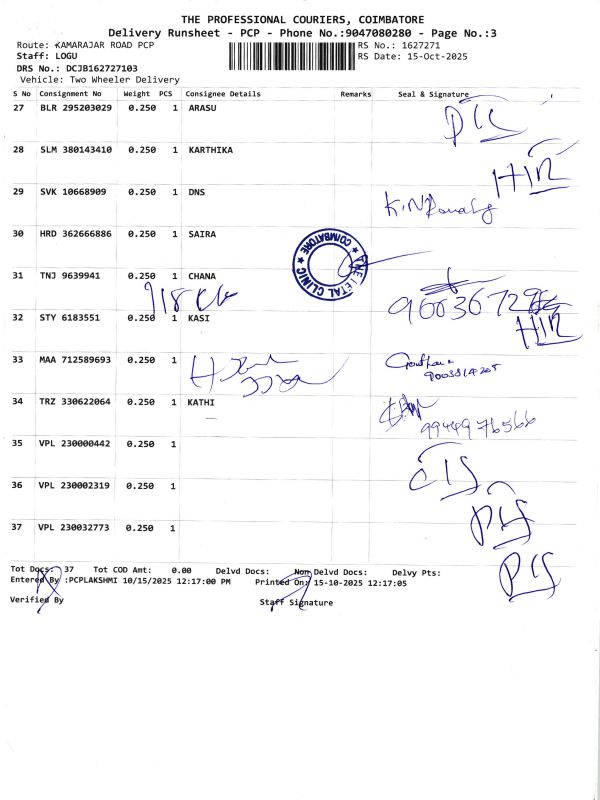 THE PROFESSIONAL COURIERS, COIMBATORE
Delivery Runsheet - PCP - Phone No.:9047080280 - Page No.:3
Route: KAMARAJAR ROAD PCP RS No.: 1627271
Staff: LOGU RS Date: 15-Oct-2025
DRS No.: DCJB162727103
Vehicle: Two Wheeler Delivery
S No Consignment No Weight PCS Consignee Details Remarks Seal & Signature
27 BLR 295203029 0.250 1 ARASU
28 SLM 380143410 0.250 1 KARTHIKA
29 SVK 10668909 0.250 1 DNS
30 HRD 362666886 0.250 1 SAIRA
COIMBATORE
31 TNJ 9639941 0.250 1 CHANA
32 STY 6183551 0.250 1 KASI
33 MAA 712589693 0.250 1
34 TRZ 330622064 0.250 1 KATHI
9944976566
35 VPL 230000442 0.250 1
36 VPL 230002319 0.250 1
37 VPL 230032773 0.250 1
Tot Docs: 37 Tot COD Amt: 0.00 Delvd Docs: Non Delvd Docs: Delvy Pts:
Entered By :PCPLAKSHMI 10/15/2025 12:17:00 PM Printed On: 15-10-2025 12:17:05
Verified By Staff Signature